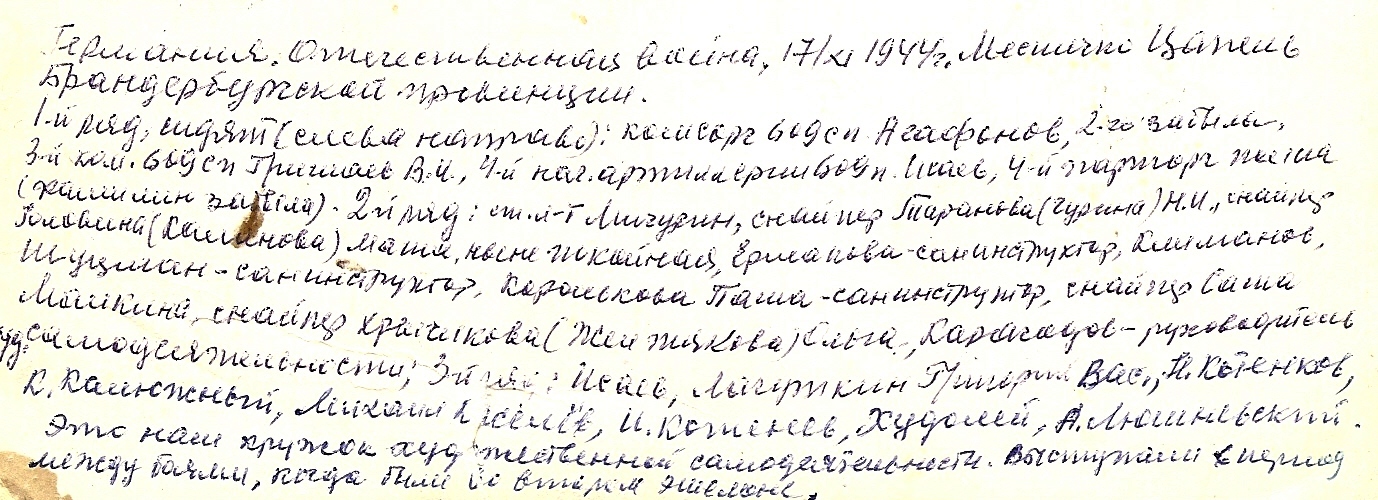 Германия. Отечественная война, 17/XI 1944г. Местечко Цапель
Брандербургской провинции.
1-й ряд, сидят (слева направо): комсорг 609 сп Агафонов, 2-го забыла,
3-й ком. 609 сп Григорьев В.И., 4-й нач. артиллерии 609 п. Исаев, 4-й парторг полка
(фамилию забыла). 2-й ряд: ст. л-т Мичурин, снайпер Таранова (Чурина) Н.И., снайпер
Головина (Калинова) Маша, ныне покойная, Ермакова - санинструктор, Климанов,
Шуцман - санинструктор, Королькова Паша - санинструктор, снайпер Саша
Машкина, снайпер Крытчикова ( ) Ольга, Карагодов - руководитель
худ. самодеятельности; 3-й ряд: Исаев, Лагуткин Григорий Вас., Н. Котенков,
К. Калюжный, Михаил Киселёв, И. Котенев, Худолей, А. Люшньский.
Это наш кружок художественной самодеятельности. Выступали в период
между боями, когда были во втором эшелоне.